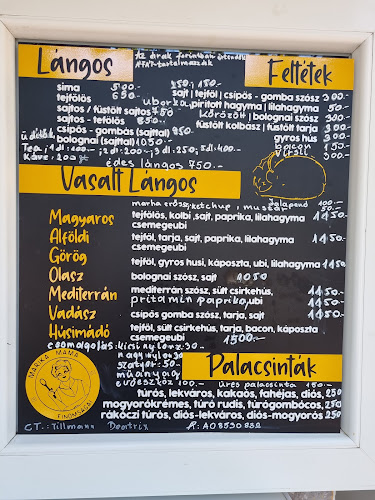 Lángos
Az árak forintban értendők
ÁFÁ-t tartalmazzák
Feltétek
sima 500.-
tejfölös 650.-
sajtos / füstölt sajtos 750.-
sajtos - tefölös 850.-
csípős - gombás (sajttal) 950.-
bolognai (sajttal) 1050.-
üdítők
Tea: 1dl: 100.- ; 2dl: 200.- ; 3dl: 250.; 5dl: 400.-
Káve: 200
édes lángos 750.-
250.- ; 150.-
sajt | tejföl | csípős - gomba szósz 300.-
uborka, pirított hagyma | lilahagyma 50.-
körözött | bolognai szósz 300.-
füstölt kolbász | füstölt tarja 300.-
gyros hús 300.-
bacon 150.-
virsli 300.-
Vasalt Lángos
marha erős, ketchup, mustár 50.-
Jalapeno 100.-
Magyaros tejfölös, kolbi ,sajt, paprika, lilahagyma 1150.-
csemegeubi
Alföldi tejföl, tarja, sajt, paprika, lilahagyma 1150.-
csemegeubi
Görög tejföl, gyros husi, káposzta, ubi, lilahagyma 1150
Olasz bolognai szósz, sajt 1050
Mediterrán mediterrán szósz, sült csirkehús, 1150.-
pritamin paprika, ubi
Vadász csípős gomba szósz, tarja, sajt 1150
Húsimádó tejföl, sült csirkehús, tarja, bacon, káposzta
csemegeubi 1500.-
csomagolás: kicsi nylon: 30.-
nagy nylon 30
szatyor: 50.-
műanyag
evőeszköz 100.-
MARIKA MAMA
FINOMSÁGAI
Palacsinták
üres palacsinta 150.-
túrós, lekváros, kakaós, fahéjas, diós, 250
mogyorókrémes, túró rudis, túrógombócos, 250
rákóczi túrós, diós-lekváros, diós-mogyorós 250
CT.: Tillmann Beatrix